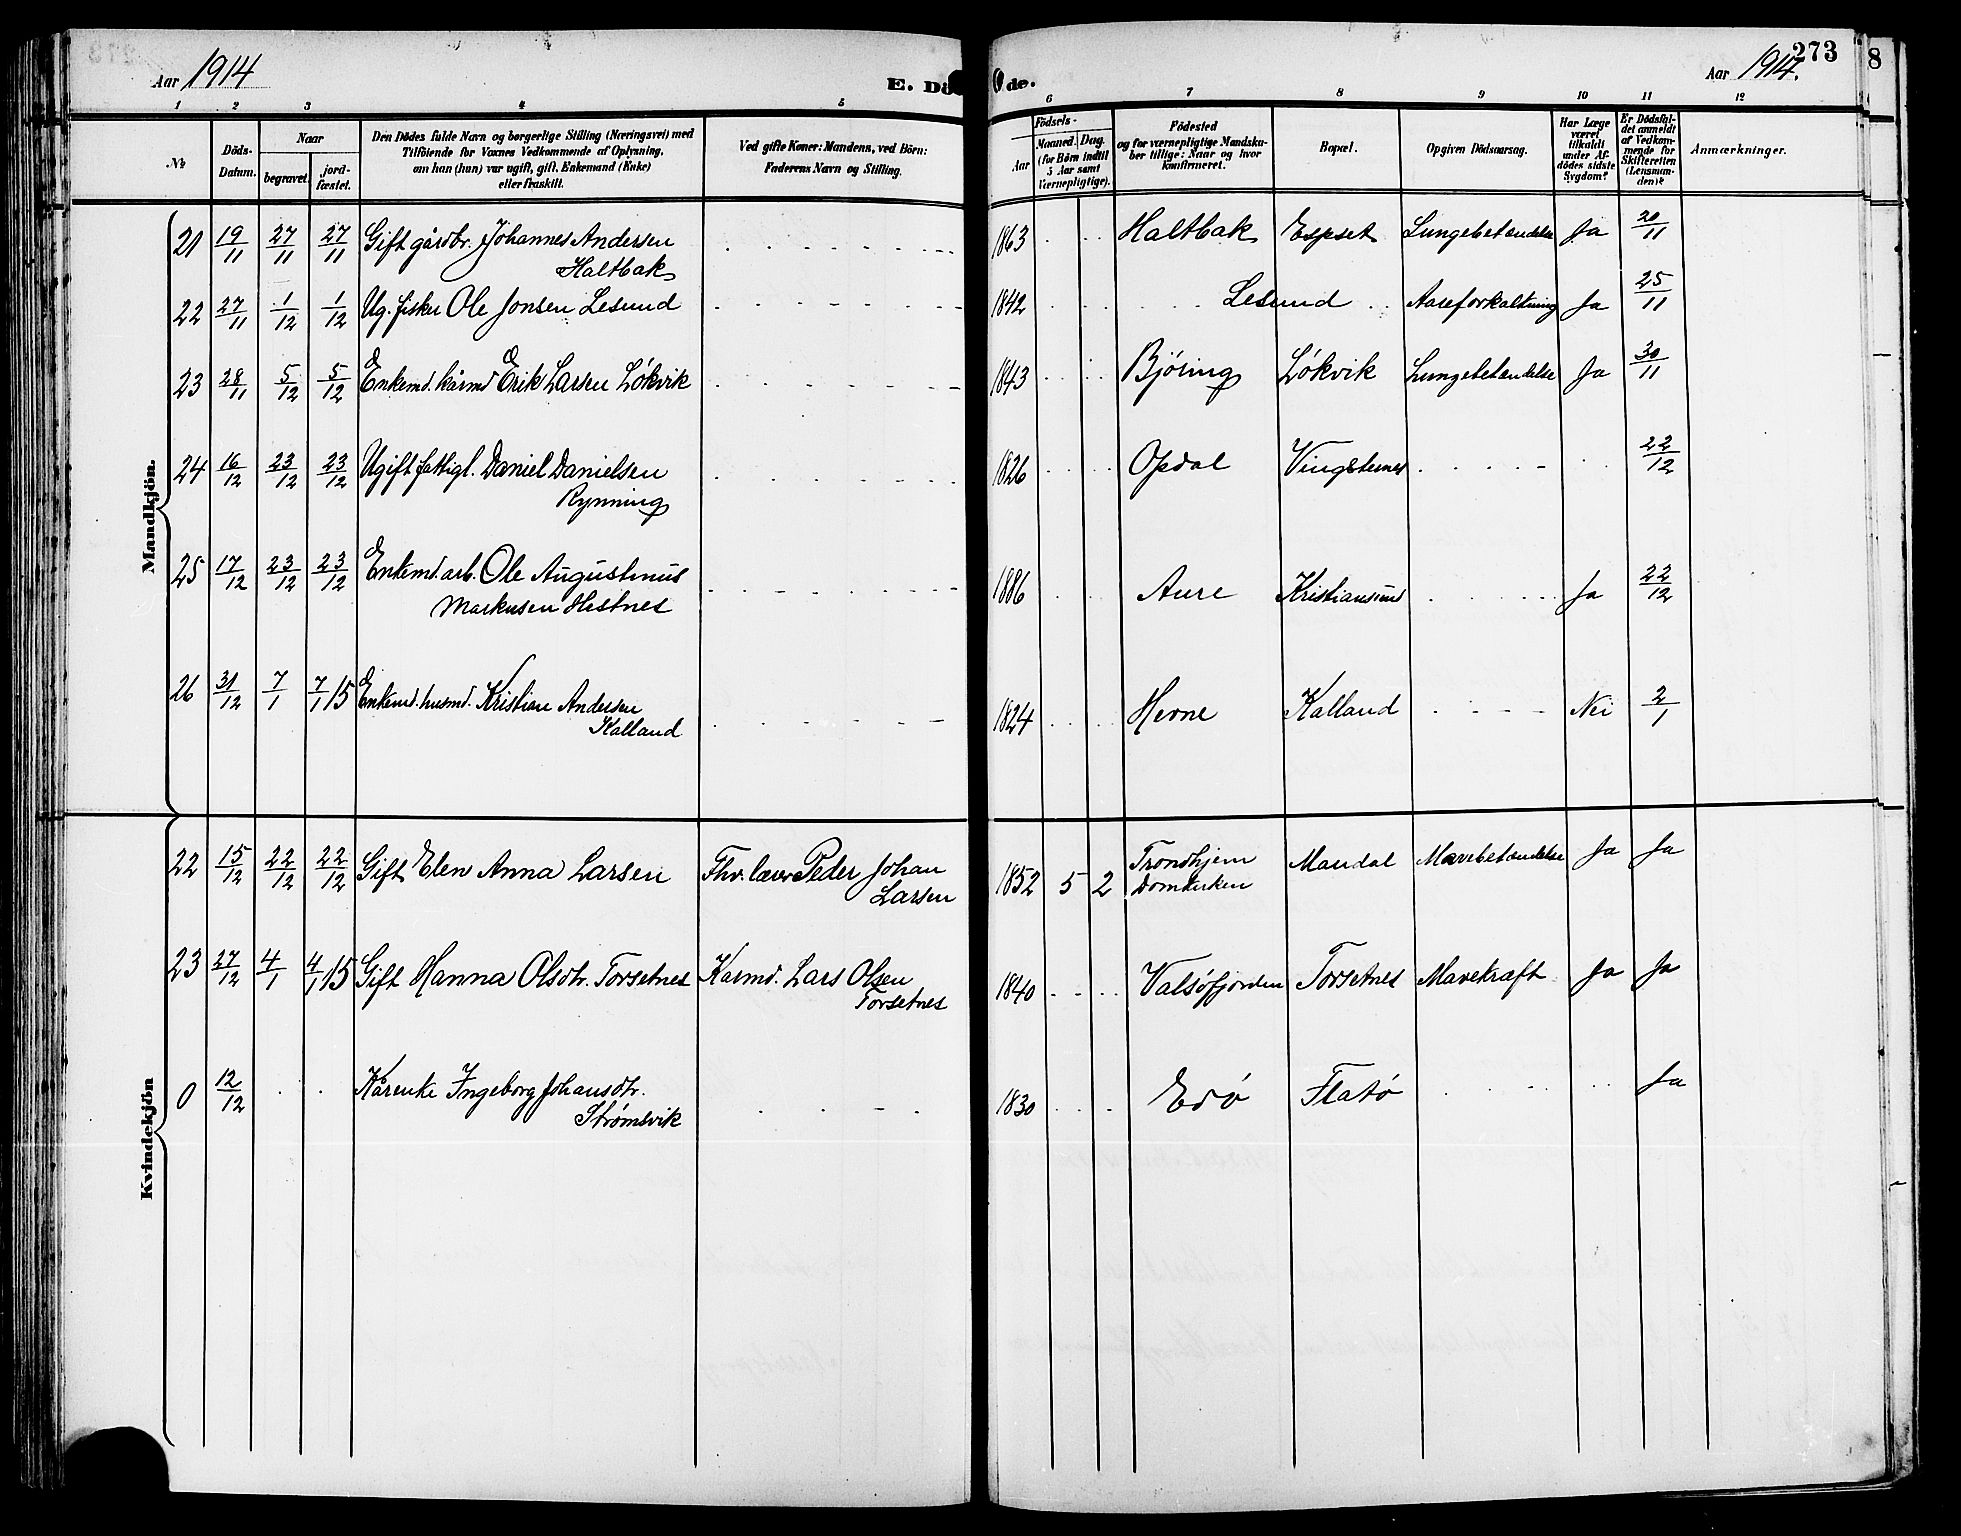 Aar 1914
E. Dö de.
Aar 1914.
273
8
1 2 3 4 5 6 7 8 9 10 11 12
No
Döds-
Datum.
Naar
begravet.
jord-
fæstet.
Den Dödes fulde Navn og borgerlige Stilling (Næringsvei) med
Tilföiende for Voxnes Vedkommende af Oplysning,
om han (hun) var ugift, gift, Enkemand (Enke)
eller fraskilt.
Ved gifte Koner: Mandens, ved Börn:
Faderens Navn og Stilling.
Födsels-
Aar
Maaned.
Dag.
(for Börn indtil
5 Aar samt
Værnepligtige).
Födested
og for værnepligtige Mandska-
ber tillige: Naar og hvor
konfirmeret.
Bopæl.
Opgiven Dödsaarsag.
Har Læge
været
tilkaldt
under Af-
dödes sidste
Sygdom?
Er Dödsfal-
det anmeldt
af Vedkom-
mende for
Skifteretten
(Lensman-
den)?
Anmærkninger.
Mandkjön.
21 19/11 27/11 27/11 Gift gårdbr. Johannes Andersen 1863 Haltbak Espset Lungebetændelse Ja 20/11
Haltbak
22 27/11 1/12 1/12 Ug. fisker Ole Jonsen Lesund 1842 Lesund Aareforkaltning Ja 25/11
23 28/11 5/12 5/12 Enkemd. kårmd Erik Larsen Løkvik 1843 Bjøring Løkvik Lungebetændelse Ja 30/11
24 16/12 23/12 23/12 Ugift fattigl. Daniel Danielsen 1826 Opdal Vingsternes 22/12
Rynning
25 17/12 23/12 23/12 Enkemd. arb. Ole Augustinus 1886 Aure Kristiansund Ja 22/12
Markusen Hestnes
26 31/12 7/1 7/1 15 Enkemd. husmd. Kristian Andersen 1824 Hevne Kalland Nei 2/1
Kalland
Kvindekjön
22 15/12 22/12 22/12 Gift Elen Anna Larsen Fhv. lærer Peder Johan 1852 5 2 Trondhjem Mandal Mavebetændelse Ja Ja
Larsen Domkirken
23 27/12 4/1 4/1 15 Gift Hanna Olsdtr. Torsetnes Karmd. Lars Olsen 1840 Valsøfjorden Torsetnes Mavekræft Ja Ja
Torsetnes
0 12/12 Kårenke Ingeborg Johansdtr. 1830 Edø Flatø Ja
Strømsvik